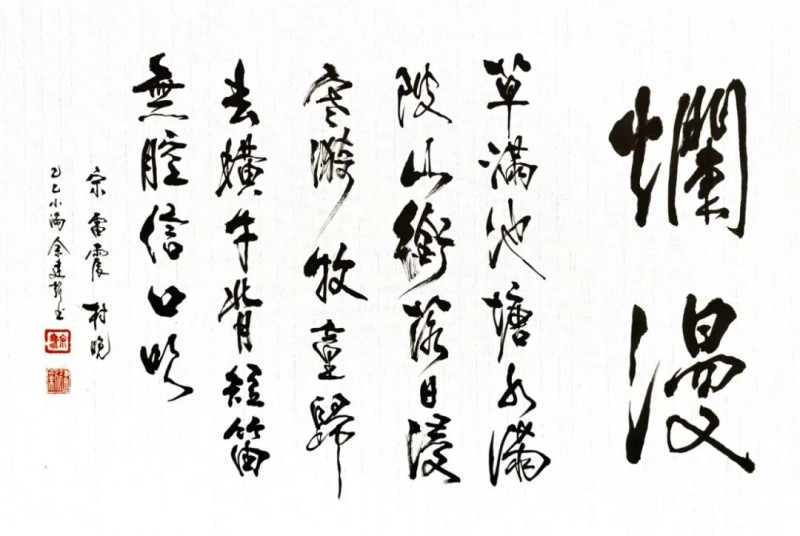 爛漫
草滿池塘水滿
陂山銜落日浸
寒漪牧童歸
去橫牛背短笛
無腔信口吹
宋雷震村晚
乙巳小滿余建書